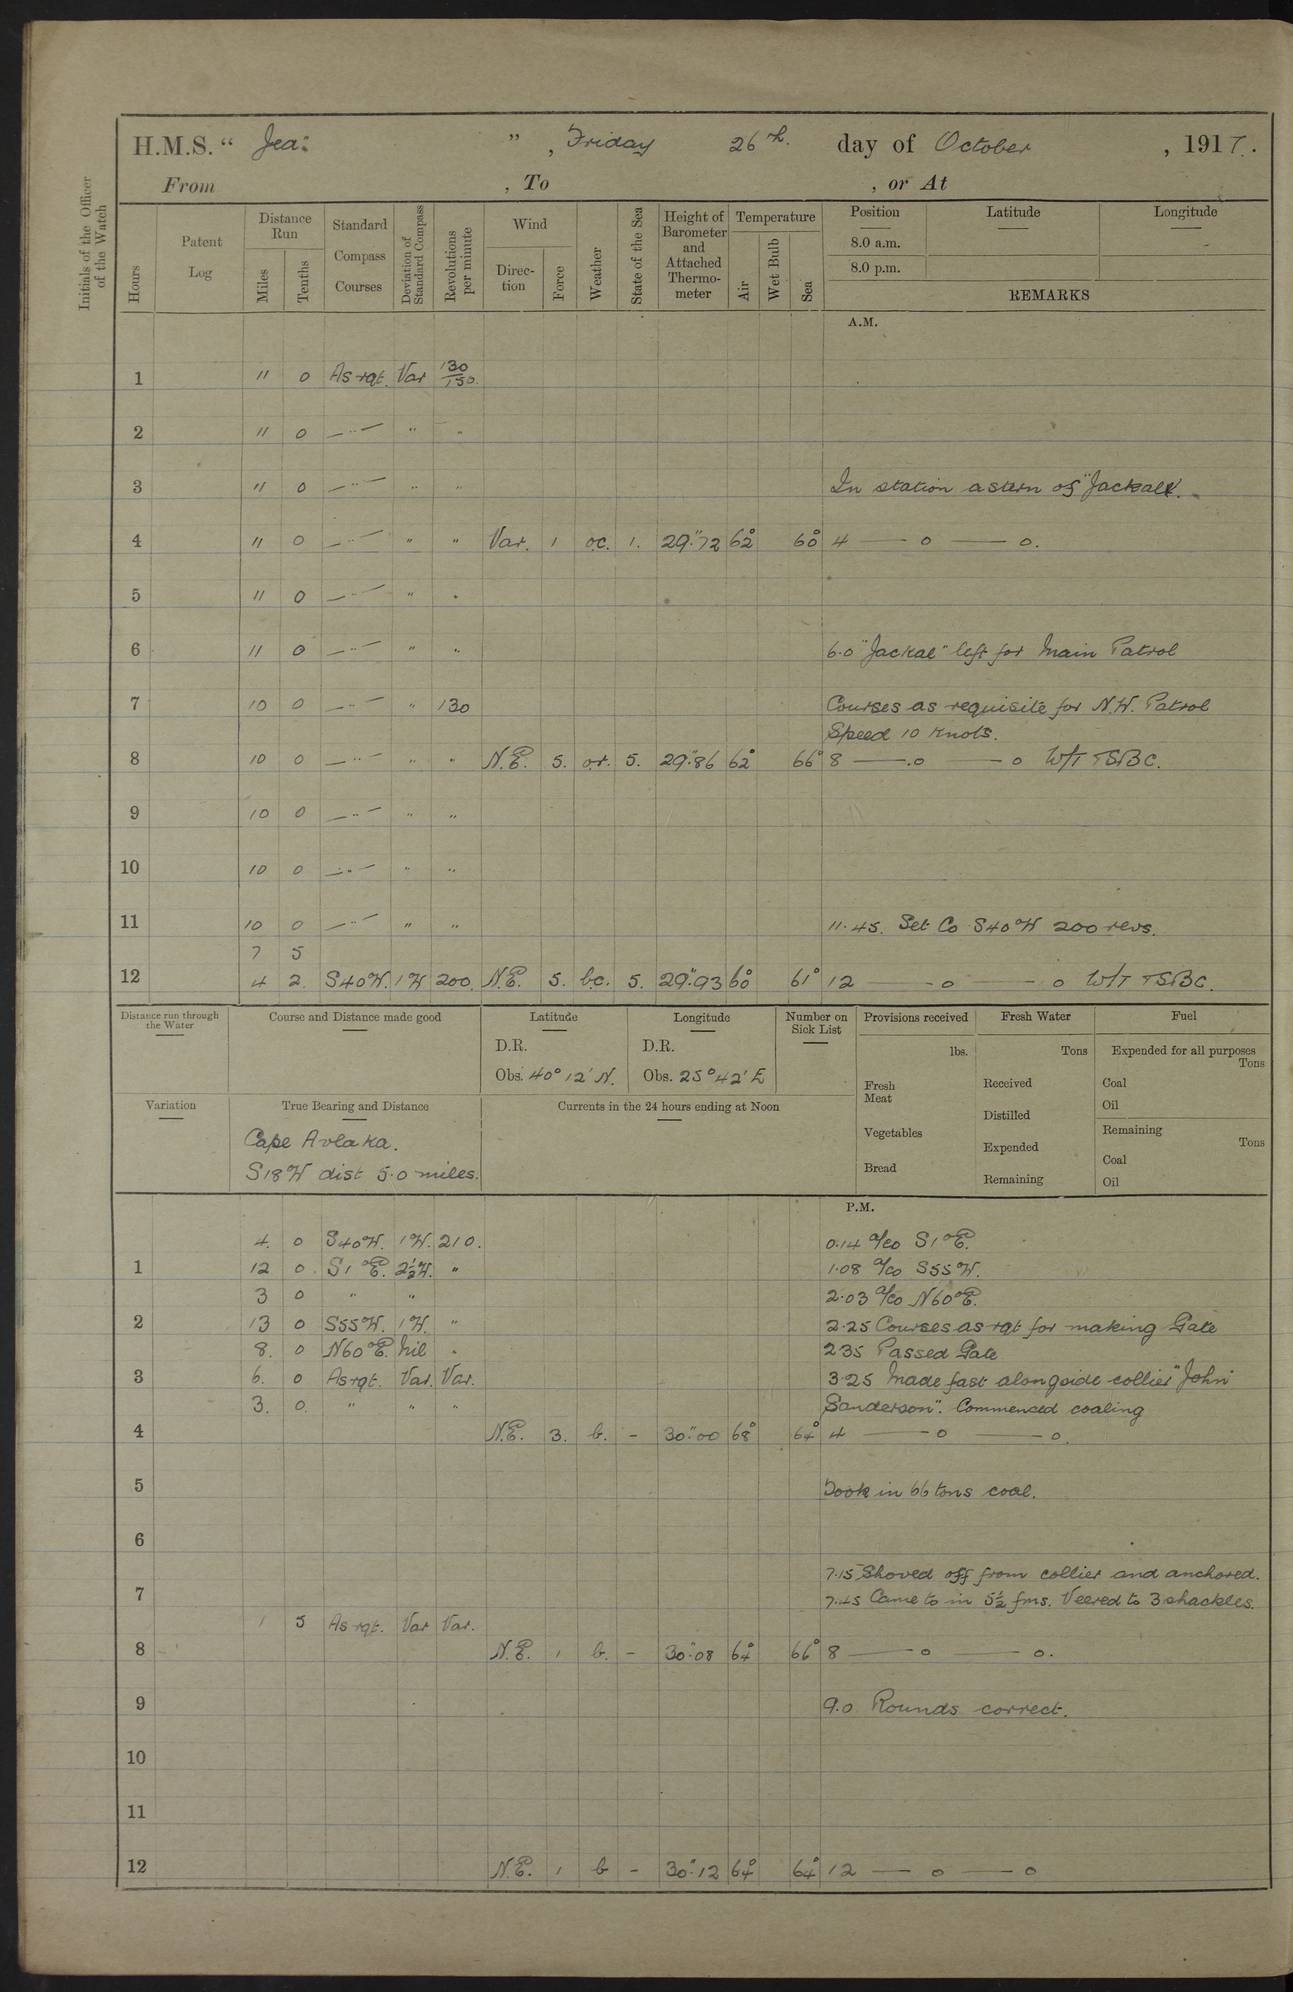 H.M.S. “ Jed: ” , Friday 26th. day of October , 1917.
From , To , or At
Initials of the Officer of the Watch
Hours
Patent Log
Distance Run
Miles
Tenths
Standard Compass Courses
Deviation of Standard Compass
Revolutions per minute
Wind
Direction
Force
Weather
State of the Sea
Height of Barometer and Attached Thermometer
Temperature
Air
Wet Bulb
Sea
Position Latitude Longitude
8.0 a.m.
8.0 p.m.
REMARKS
A.M.
1 11 0 As rqt. Var 130/150.
2 11 0 —"— " "
3 11 0 —"— " " In station astern of "Jackal".
4 11 0 —"— " " Var. 1 oc. 1. 29".72 62° 60° 4 — o — o.
5 11 0 —"— " "
6 11 0 —"— " " 6.0 "Jackal" left for Main Patrol
7 10 0 —"— " 130 Courses as requisite for N.W. Patrol
Speed 10 knots.
8 10 0 —"— " " N.E. 5. or. 5. 29".86 62° 66° 8 — o — o W/T TSBC.
9 10 0 —"— " "
10 10 0 —"— " "
11 10 0 —"— " " 11.45. Set Co S40°W 200 revs.
7 5
12 4 2. S40°W. 1W 200. N.E. 5. bc. 5. 29".93 60° 61° 12 — o — o W/T TSBC.
Distance run through the Water
Course and Distance made good
Latitude
D.R.
Obs. 40° 12' N.
Longitude
D.R.
Obs. 25° 42' E
Number on Sick List
Provisions received
lbs.
Fresh Meat
Vegetables
Bread
Fresh Water
Tons
Received
Distilled
Expended
Remaining
Fuel
Expended for all purposes
Tons
Coal
Oil
Remaining
Tons
Coal
Oil
Variation
True Bearing and Distance
Cape Avlaka.
S18W dist 5.0 miles.
Currents in the 24 hours ending at Noon
P.M.
4. 0 S40°W. 1W. 210. 0.14 a/co S1°E.
1 12 0. S1°E. 2½W. " 1.08 a/co S55°W.
3 0 " " 2.03 a/co N60°E.
2 13 0 S55°W. 1W. " 2.25 Courses as rqt for making Gate
8. 0 N60°E. Nil " 2.35 Passed Gate
3 6. 0 As rqt. Var. Var. 3.25 Made fast alongside collier "John
3. 0. " " " Sanderson". Commenced coaling
4 N.E. 3. b. - 30".00 68° 64° 4 — o — o.
5 Took in 66 tons coal.
6
7.15 Shoved off from collier and anchored.
7 7.45 Came to in 5½ fms. Veered to 3 shackles.
1 5 As rqt. Var Var.
8 N.E. 1 b. - 30".08 64° 66° 8 — o — o.
9 9.0 Rounds correct.
10
11
12 N.E. 1 b - 30".12 64° 64° 12 — o — o